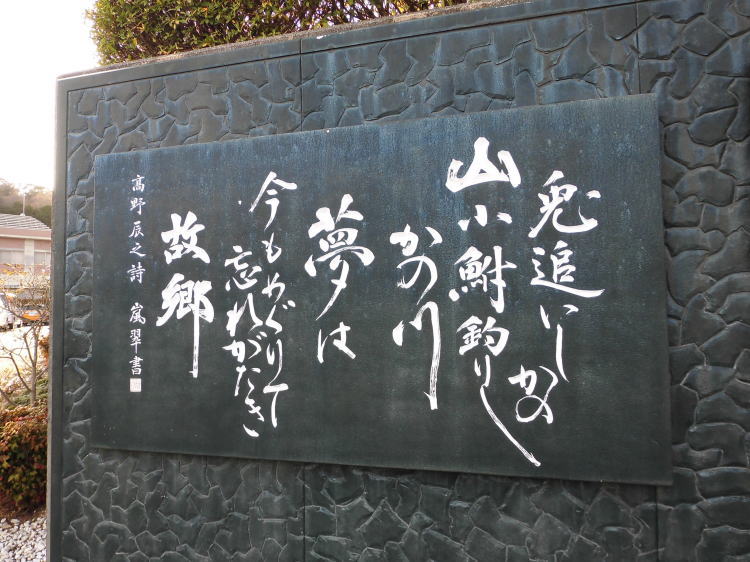 兎追いし
かの
山小鮒釣りし
かの川
夢は
今もめぐりて
忘れがたき
故郷
高野辰之詩 嵐翠書